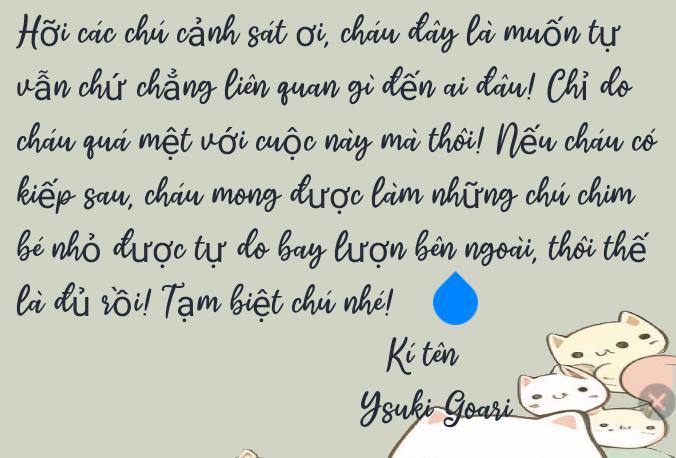 Hỡi các chú cảnh sát ơi, cháu đây là muốn tự
vẫn chứ chẳng liên quan gì đến ai đâu! Chỉ do
cháu quá mệt với cuộc này mà thôi! Nếu cháu có
kiếp sau, cháu mong được làm những chú chim
bé nhỏ được tự do bay lượn bên ngoài, thôi thế
là đủ rồi! Tạm biệt chú nhé!
Kí tên
Ysuki Goari